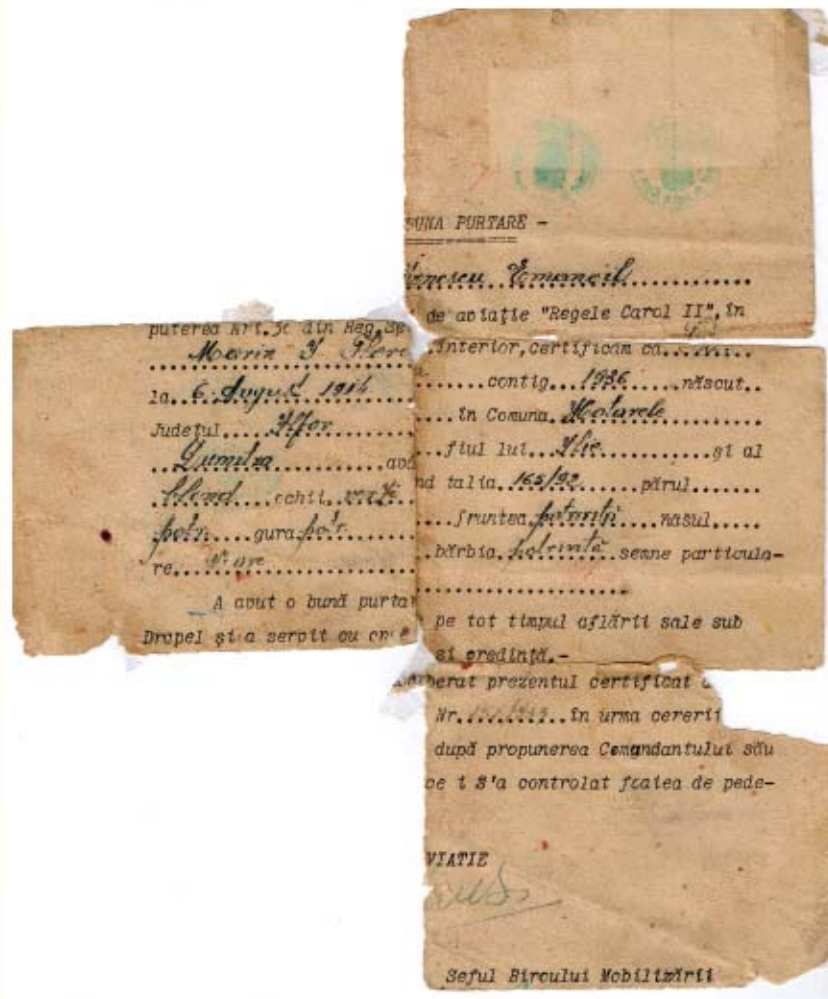 BUNA PURTARE -
nescu Emanoil
de aviație "Regele Carol II", în
puterea Art.50 din Reg. Se .Interior, Certificăm că
Marin I Flore contig 1936 născut
la 6 August 1914 în Comuna Hotarele
Județul Ilfov fiul lui Ilie și al
Dumitra avâ nd talia 165/92 părul
blond ochii verzi fruntea potrivită nasul
potr. gura potr. bărbia potrivită semne particula-
re
A avut o bună purtar pe tot timpul aflării sale sub
Drapel și a servit cu si credință.-
berat prezentul certificat
Nr. în urma cererii
după propunerea Comandantului său
ce i S'a controlat foatea de pede-
VIATIE
Seful Biroului Mobilizării